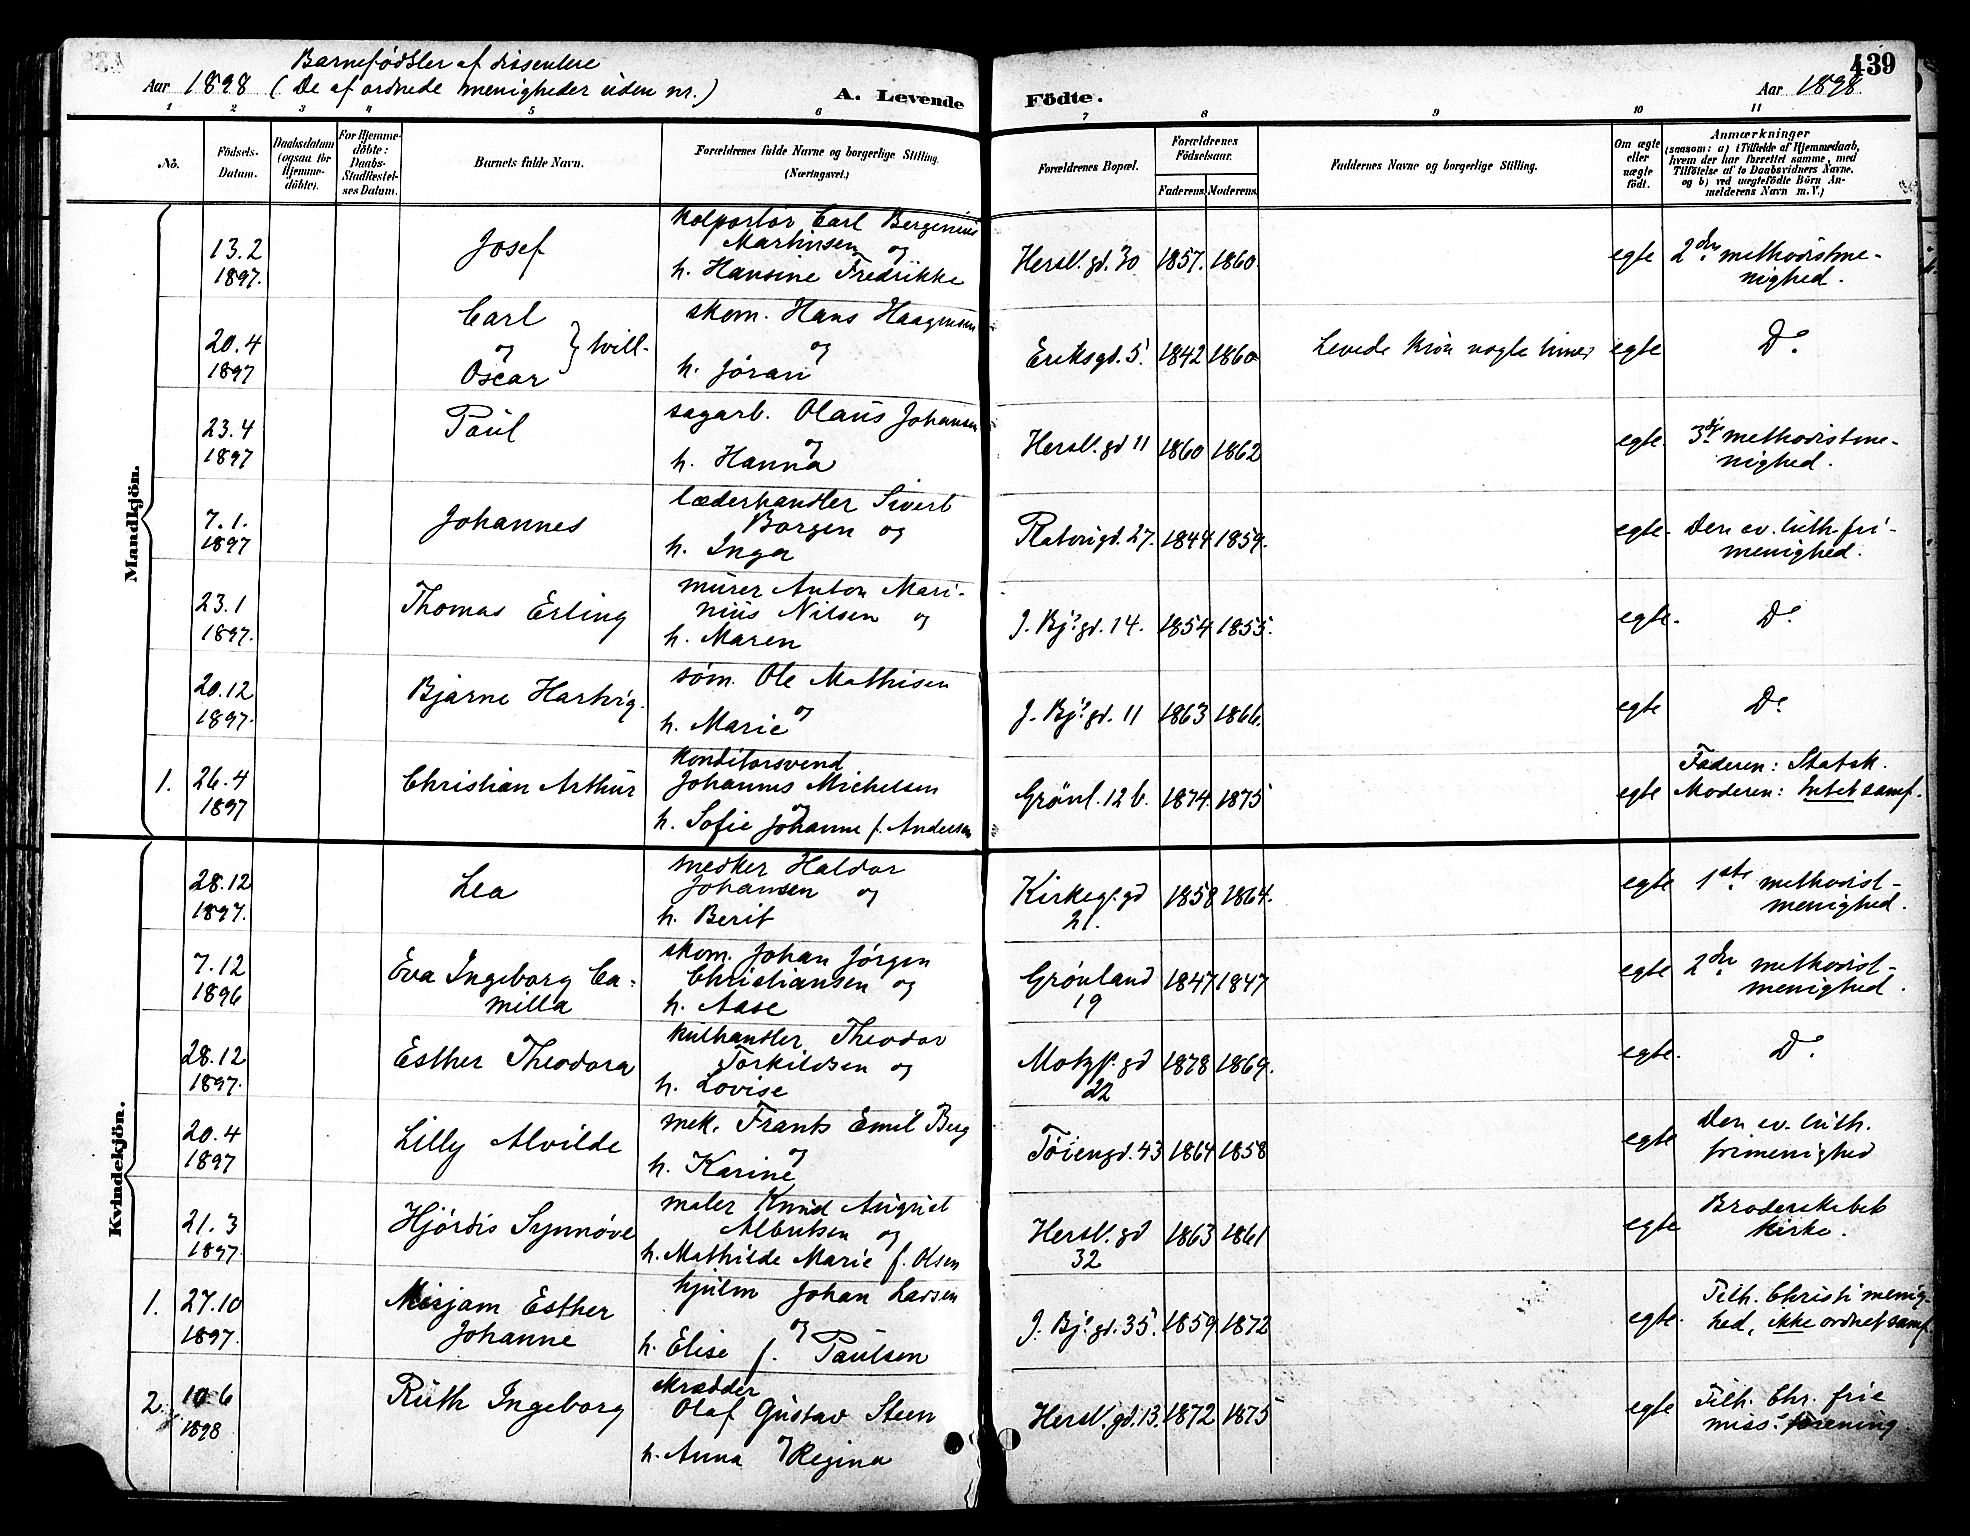 Barnefödsler af dissentere
Aar 1898 (De af ordnede menigheder uden nr.)
A. Levende Födte.
439
Aar 1898.
1 2 3 4 5 6 7 8 9 10 11
No.
Födsels-
Datum.
Daabsdatum
(ogsaa for
Hjemme-
döbte).
For Hjemme-
döbte:
Daabs-
Stadfæstel-
ses Datum.
Barnets fulde Navn.
Forældrenes fulde Navne og borgerlige Stilling.
(Næringsvei.)
Forældrenes Bopæl.
Forældrenes
Födselsaar.
Faderens.
Moderens.
Faddernes Navne og borgerlige Stilling.
Om ægte
eller
uægte
födt.
Anmærkninger
(saasom: a) i Tilfælde af Hjemmedaab,
hvem der har forrettet samme, med
Tilföielse af to Daabsvidners Navne.
og b) ved uegtefödte Börn An-
melderens Navn m. V.)
Mandkjön.
13.2
1897.
Josef
Kolportör Carl Bergenius
Martinsen og
h. Hansine Fredrikke
Hersl. gd. 30
1857. 1860.
egte
2den methodistme-
nighed.
20.4
1897
Carl
og
Oscar
} tvill.
skom. Hans Haagensen
og
h. Jöran
Eriksgd. 5
1842 1860
Levede kun nogle timer
egte
Do.
23.4
1897
Paul
sagarb. Olaus Johansen
og
h. Hanna
Hersl. gd 11
1860 1862
egte.
3die methodistme-
nighed.
7.1.
1897
Johannes
læderhandler Sivert
Borgen og
h. Inga
Platousgd. 27.
1844 1859.
egte.
Den ev. luth. fri-
menighed.
23.1
1897.
Thomas Erling
murer Anton Mari-
nius Nilsen og
h. Maren
J. Bj. gd. 14.
1854 1855.
egte.
Do
20.12
1897.
Bjarne Hartvig.
söm. Ole Mathisen
og
h. Marie
J. Bj. gd. 11
1863 1866.
egte
Do
1.
26.4
1897
Christian Arthur
Konditorsvend
Johannes Michelsen
og
h. Sofie Johanne f. Andersen
Grönl. 12 b.
1874. 1875
egte
Faderen: Statsk.
Moderen: Intet samf.
Kvindekjön.
28.12
1897.
Lea
snedker Haldor
Johansen og
h. Berit
Kirkeg. gd
21.
1858 1864.
egte
1ste methodist-
menighed.
7.12
1896
Eva Ingeborg Ca-
milla
skom. Johan Jörgen
Christiansen og
h. Aase
Grönland
19
1847 1847
egte
2den methodist-
menighed.
28.12
1897.
Esther Theodora
kulhandler Theodor
Torkildsen og
h. Lovise
Motzf. gd
22
1878 1869.
egte.
Do.
20.4
1897
Lilly Alvilde
mek. Frants Emil Berg
og
h. Karine
Töiengd. 43
1864 1858
egte
Den ev. luth.
frimenighed
21.3
1897.
Hjördis Synnöve
maler Knud August
Albertsen og
h. Mathilde Marie f. Olsen
Hersl. gd
32
1863 1861
egte
Broderskabets
kirke.
1.
27.10
1897.
Mirjam Esther
Johanne
hjulm Johan Larsen
og
h. Elise f. Paulsen
J. Bj. gd. 35.
1859. 1872
egte.
Tilh. Christi menig-
hed, ikke ordnet samf.
2
10.6
1898
Ruth Ingeborg
skrædder
Olaf Gustav Steen
og
h. Anna Regina
Hersl. gd. 13.
1872 1875
egte
Tilh. Chr. frie
miss. forening